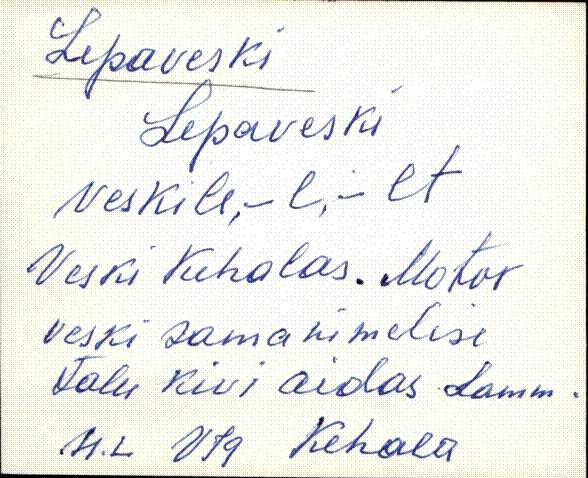 Lepaveski
Lepaveski
veskile, - l, - lt
Veski Kehalas. Motor
veski samanimelise
Talu kivi aidas
Kehala